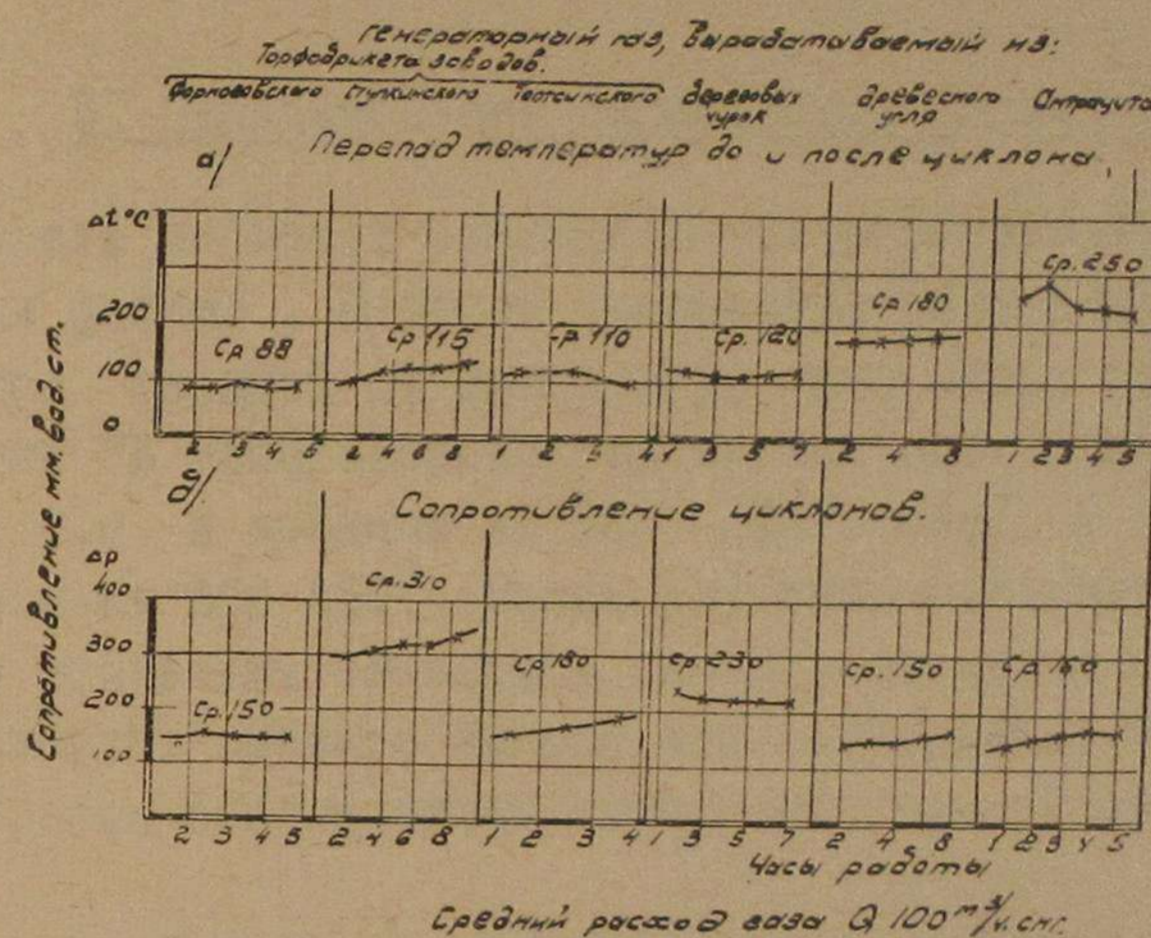 Генераторный газ, вырабатываемый из:
Торфобрикета заводов.
Ступкинского Тоотсинского деревовых древесного Антрацита
чурок угля
а/ Перепад температур до и после циклона
Δt°C
200
100
0
Ср 88
Ср 115
Ср. 110
Ср. 120
Ср 180
Ср. 250
2 3 4 5 2 4 6 8 1 2 3 4 1 3 5 7 2 4 8 1 2 3 4 5
Сопротивление мм. вод. ст.
б/ Сопротивление циклонов.
Δр
400
300
200
100
Ср. 150
Ср. 310
Ср 180
Ср 230
Ср. 150
Ср. 160
2 3 4 5 2 4 6 8 1 2 3 4 1 3 5 7 2 4 8 1 2 3 4 5
Часы работы
Средний расход газа Q 100 м³/ч.